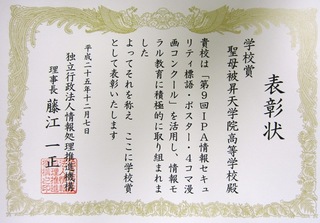 表彰状
学校賞
聖母被昇天学院高等学校殿
貴校は「第9回IPA情報セキュ
リティ標語・ポスター・4コマ漫
画コンクール」を活用し、情報モ
ラル教育に積極的に取り組まれま
した
よってそれを称え ここに学校賞
として表彰いたします
平成二十五年十二月七日
独立行政法人情報処理推進機構
理事長 藤江 一正